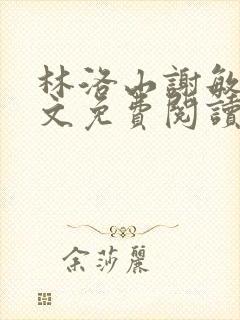 林洛山謝敏
文免費閱讀
余莎麗